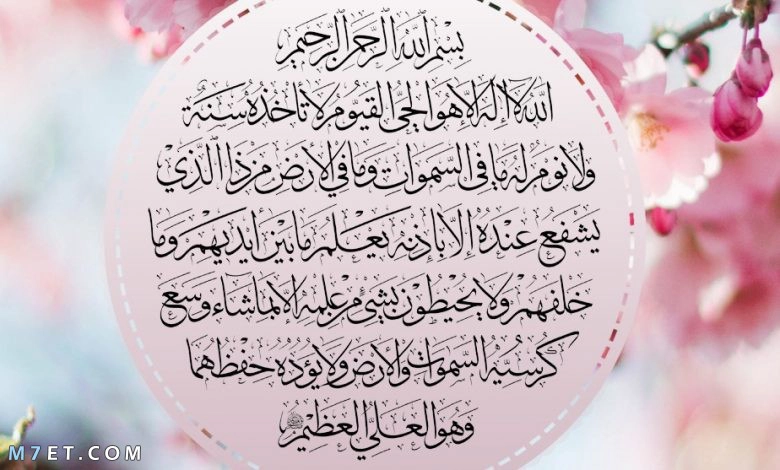 بِسْمِ ٱللَّهِ ٱلرَّحْمَٰنِ ٱلرَّحِيمِ
اللهُ لَا إِلَهَ إِلَّا هُوَ الْحَيُّ الْقَيُّومُ لَا تَأْخُذُهُ سِنَةٌ
وَلَا نَوْمٌ لَهُ مَا فِي السَّمَوَاتِ وَمَا فِي الْأَرْضِ مَنْ ذَا الَّذِي
يَشْفَعُ عِنْدَهُ إِلَّا بِإِذْنِهِ يَعْلَمُ مَا بَيْنَ أَيْدِيهِمْ وَمَا
خَلْفَهُمْ وَلَا يُحِيطُونَ بِشَيْءٍ مِنْ عِلْمِهِ إِلَّا بِمَا شَاءَ وَسِعَ
كُرْسِيُّهُ السَّمَوَاتِ وَالْأَرْضَ وَلَا يَؤُدُهُ حِفْظُهُمَا
وَهُوَ الْعَلِيُّ الْعَظِيمُ
M7ET.COM